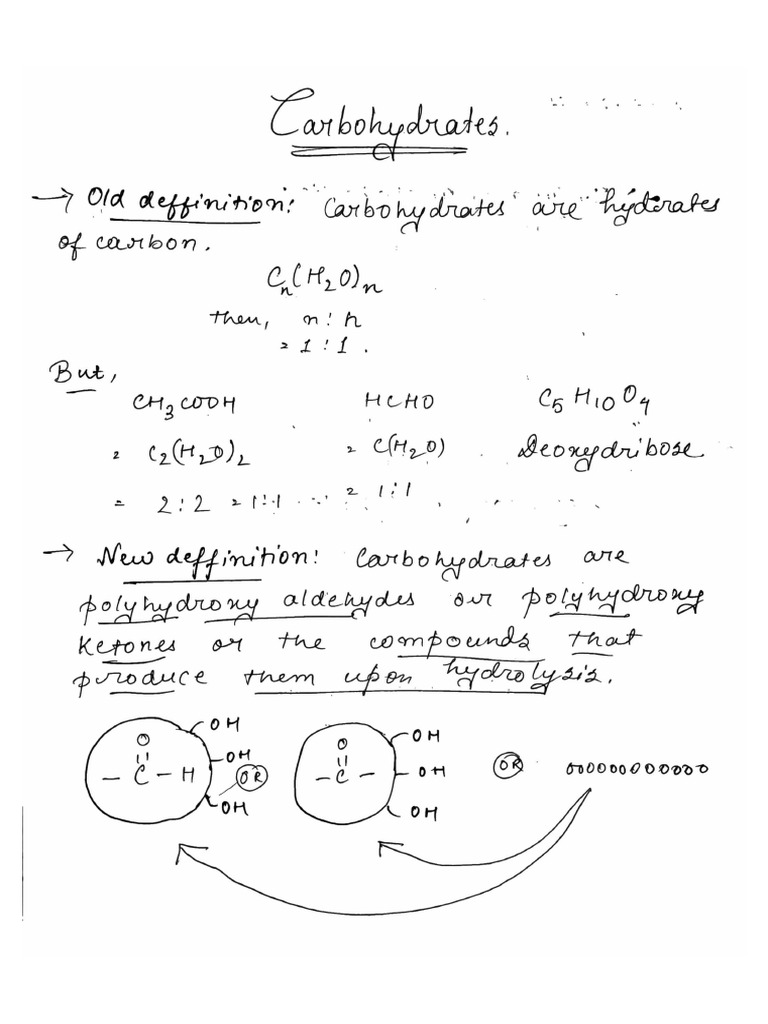 Carbohydrates.
→ Old deffinition: Carbohydrates are hydrates
of carbon.
Cn(H2O)n
then, n:n
= 1:1.
But,
CH3COOH HCHO C5H10O4
= C2(H2O)2 = C(H2O) Deoxydribose
= 2:2 = 1:1 = 1:1
→ New deffinition: Carbohydrates are
polyhydroxy aldehydes or polyhydroxy
Ketones or the compounds that
produce them upon hydrolysis.
OH OH
O OH O
– C – H OR – C – OH OR oooooooooooo
OH OH